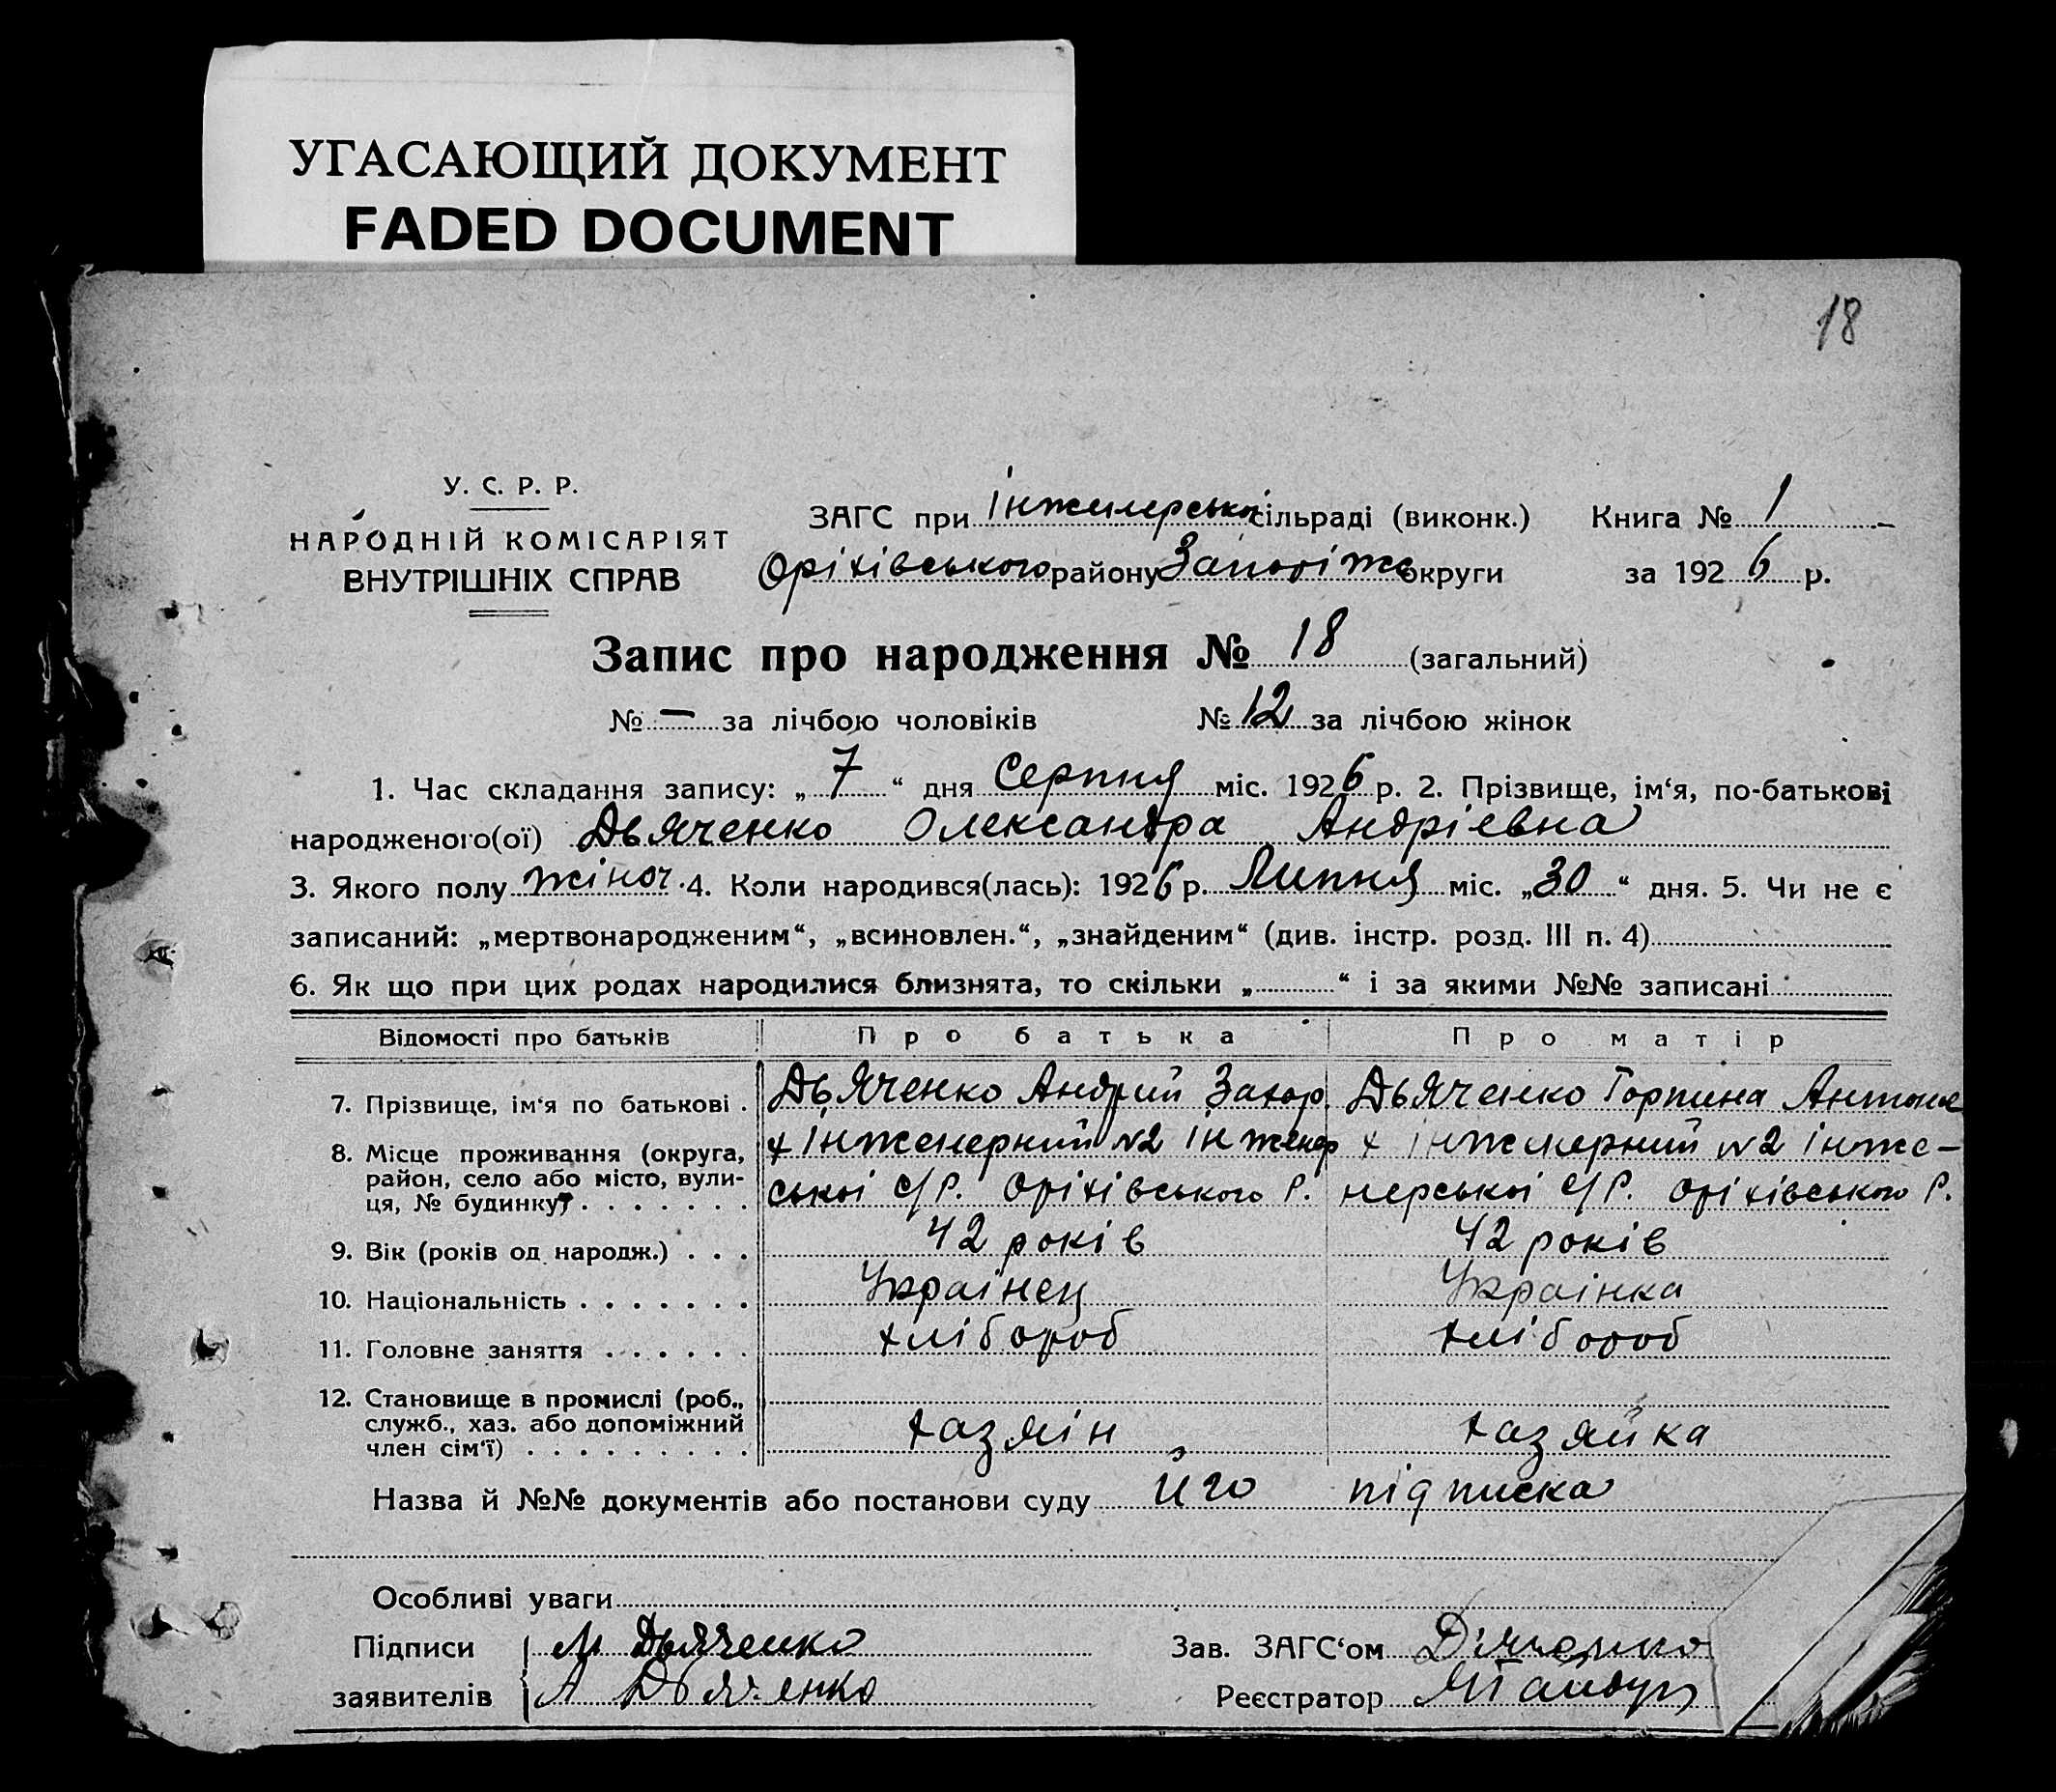 УГАСАЮЩИЙ ДОКУМЕНТ
FADED DOCUMENT
18
У. С. Р. Р.
НАРОДНІЙ КОМІСАРІЯТ
ВНУТРІШНІХ СПРАВ
ЗАГС при Інженерській сільраді (виконк.) Книга № 1
Оріхівського району Запоріжс округи за 1926 р.
Запис про народження № 18 (загальний)
№ — за лічбою чоловіків № 12 за лічбою жінок
1. Час складання запису: „ 7 “ дня Серпня міс. 1926 р. 2. Прізвище, ім‘я, по-батькові
народженого(ої) Дьяченко Олександра Андріевна
3. Якого полу жіноч. 4. Коли народився(лась): 1926 р. Липня міс. „30“ дня. 5. Чи не є
записаний: „мертвонародженим“, „всиновлен.“, „знайденим“ (див. інстр. розд. III п. 4)
6. Як що при цих родах народилися близнята, то скільки „ “ і за якими №№ записані
Відомості про батьків Про батька Про матір
7. Прізвище, ім‘я по батькові . Дьяченко Андрий Захар. Дьяченко Горпина Антоне
8. Місце проживання (округа, х Інженерний №2 Інженер х Інженерний №2 Інже-
район, село або місто, вули-
ця, № будинку) . . . . . . . ської С/Р. Оріхівського Р. нерської С/Р. Оріхівського Р.
9. Вік (років од народж.) . . . 42 років 42 років
10. Національність . . . . . . . Українец Українка
11. Головне заняття . . . . . . хлібороб хлібороб
12. Становище в промислі (роб.,
служб., хаз. або допоміжний
член сім‘ї) . . . . . . . . . хазяін хазяйка
Назва й №№ документів або постанови суду його підписка
Особливі уваги
Підписи М Дьяченко Зав. ЗАГС‘ом Дяченко
заявителів А Дьяченко Реєстратор